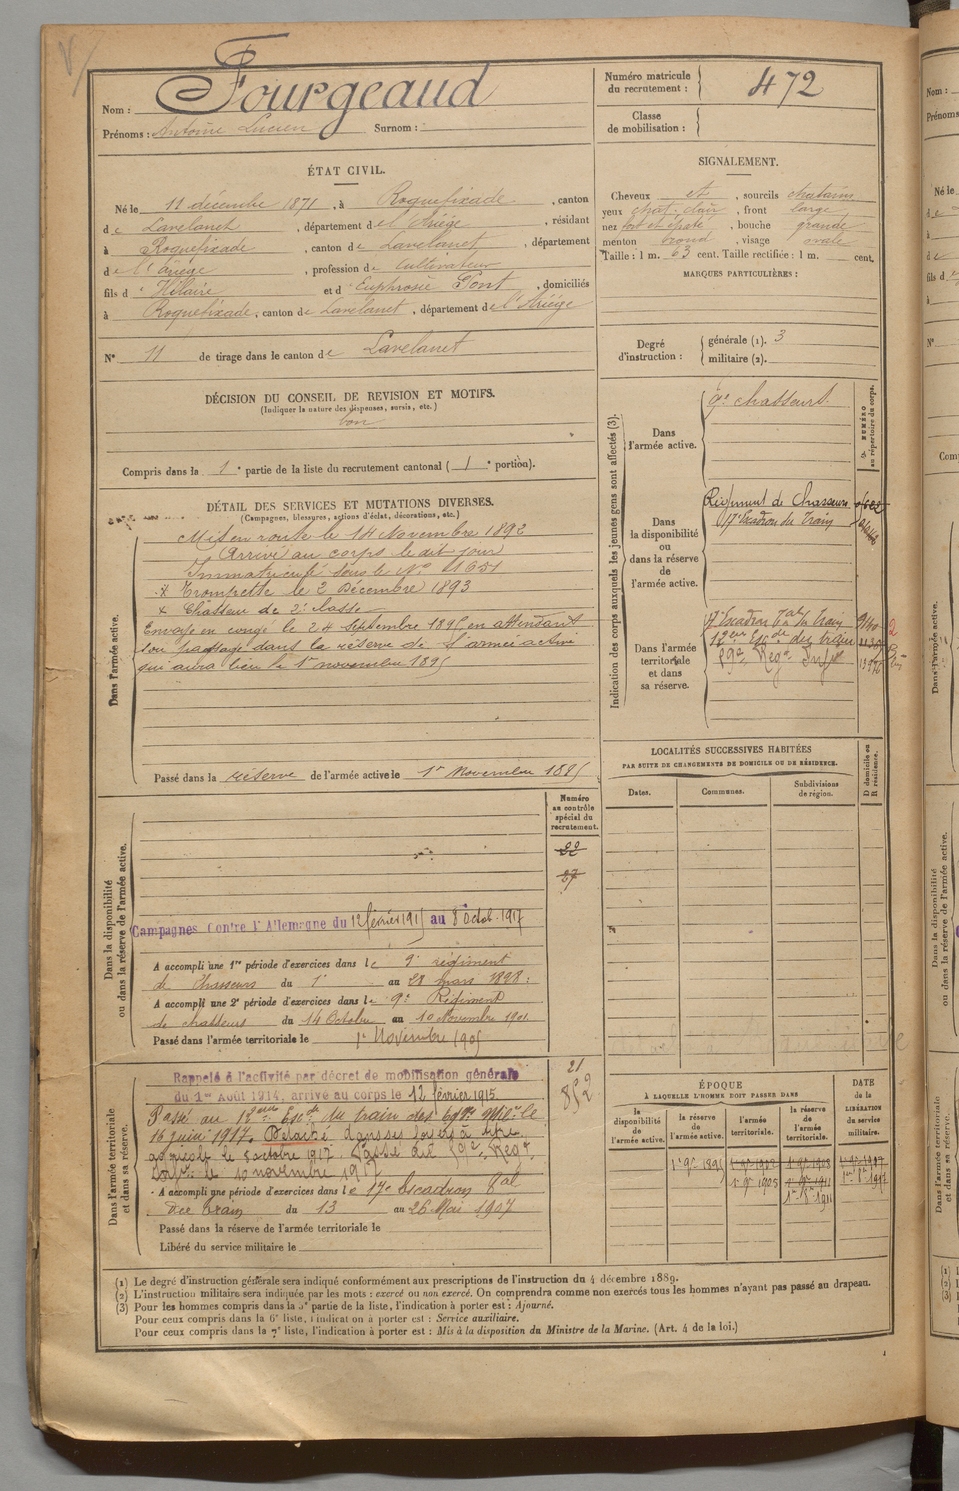 Nom : Fourgeaud
Prénoms : Antoine Lucien Surnom :
Numéro matricule du recrutement : 472
Classe de mobilisation :
ÉTAT CIVIL.
Né le 11 décembre 1871, à Roquefixade, canton
de Lavelanet, département de l'Ariège, résidant
à Roquefixade, canton de Lavelanet, département
de l'Ariège, profession de Cultivateur
fils d'Hilaire et d'Euphrosie Pont, domiciliés
à Roquefixade, canton de Lavelanet, département de l'Ariège
N° 11 de tirage dans le canton de Lavelanet
SIGNALEMENT.
Cheveux et, sourcils chatains
yeux chat. clair, front large
nez fort et épaté, bouche grande
menton rond, visage ovale
Taille : 1 m. 63 cent. Taille rectifiée : 1 m. cent.
MARQUES PARTICULIÈRES :
Degré d'instruction : générale (1). 3
militaire (2).
DÉCISION DU CONSEIL DE REVISION ET MOTIFS.
(Indiquer la nature des dispenses, sursis, etc.)
bon
Compris dans la 1e partie de la liste du recrutement cantonal (1e portion).
DÉTAIL DES SERVICES ET MUTATIONS DIVERSES.
(Campagnes, blessures, actions d'éclat, décorations, etc.)
Dans l'armée active.
Mis en route le 14 Novembre 1892
Arrivé au corps le dit jour
Immatriculé sous le N°
x Trompette le 2 Décembre 1893
x Chasseur de 2e classe
Envoyé en congé le 24 Septembre 1895 en attendant
son passage dans la réserve de l'armée active
qui aura lieu le 1er novembre 1895
Passé dans la réserve de l'armée active le 1er Novembre 1895
Indication des corps auxquels les jeunes gens sont affectés (3).
NUMÉRO au répertoire du corps.
Dans l'armée active.
9e chasseurs.
Dans la disponibilité ou dans la réserve de l'armée active.
Régiment de Chasseurs
17e Escadron du Train
Dans l'armée territoriale et dans sa réserve.
17e Escadron Tal du Train
LOCALITÉS SUCCESSIVES HABITÉES
PAR SUITE DE CHANGEMENTS DE DOMICILE OU DE RÉSIDENCE.
Dates. Communes. Subdivisions de région. D domicile ou R résidence.
Dans la disponibilité ou dans la réserve de l'armée active.
Numéro au contrôle spécial du recrutement.
27
Campagnes Contre l'Allemagne du 12 février 1915 au 8 octob. 1917
A accompli une 1re période d'exercices dans le 9e régiment
de Chasseurs du 1er au 28 mars 1898.
A accompli une 2e période d'exercices dans le 9e Régiment
de chasseurs du 14 Octobre au 10 Novembre 1901
Passé dans l'armée territoriale le 1er Novembre 1905
Dans l'armée territoriale et dans sa réserve.
21
852
Rappelé à l'activité par décret de mobilisation générale
du 1er Août 1914, arrivé au corps le 12 février 1915
Passé au Esc. du train des Eq. Mil. le
16 juin 1917. Détaché dans ses foyers à titre
agricole le 8 octobre 1917. Passé au Reg.
Inf. le 10 novembre 1917
A accompli une période d'exercices dans le 17e Escadron Tal
du Train du 13 au 26 Mai 1907
Passé dans la réserve de l'armée territoriale le
Libéré du service militaire le
ÉPOQUE
A LAQUELLE L'HOMME DOIT PASSER DANS
la disponibilité de l'armée active. la réserve de l'armée active. l'armée territoriale. la réserve de l'armée territoriale. DATE de la LIBÉRATION du service militaire.
(1) Le degré d'instruction générale sera indiqué conformément aux prescriptions de l'instruction du 4 décembre 1889.
(2) L'instruction militaire sera indiquée par les mots : exercé ou non exercé. On comprendra comme non exercés tous les hommes n'ayant pas passé au drapeau.
(3) Pour les hommes compris dans la 5e partie de la liste, l'indication à porter est : Ajourné.
Pour ceux compris dans la 6e liste, l'indication à porter est : Service auxiliaire.
Pour ceux compris dans la 7e liste, l'indication à porter est : Mis à la disposition du Ministre de la Marine. (Art. 4 de la loi.)